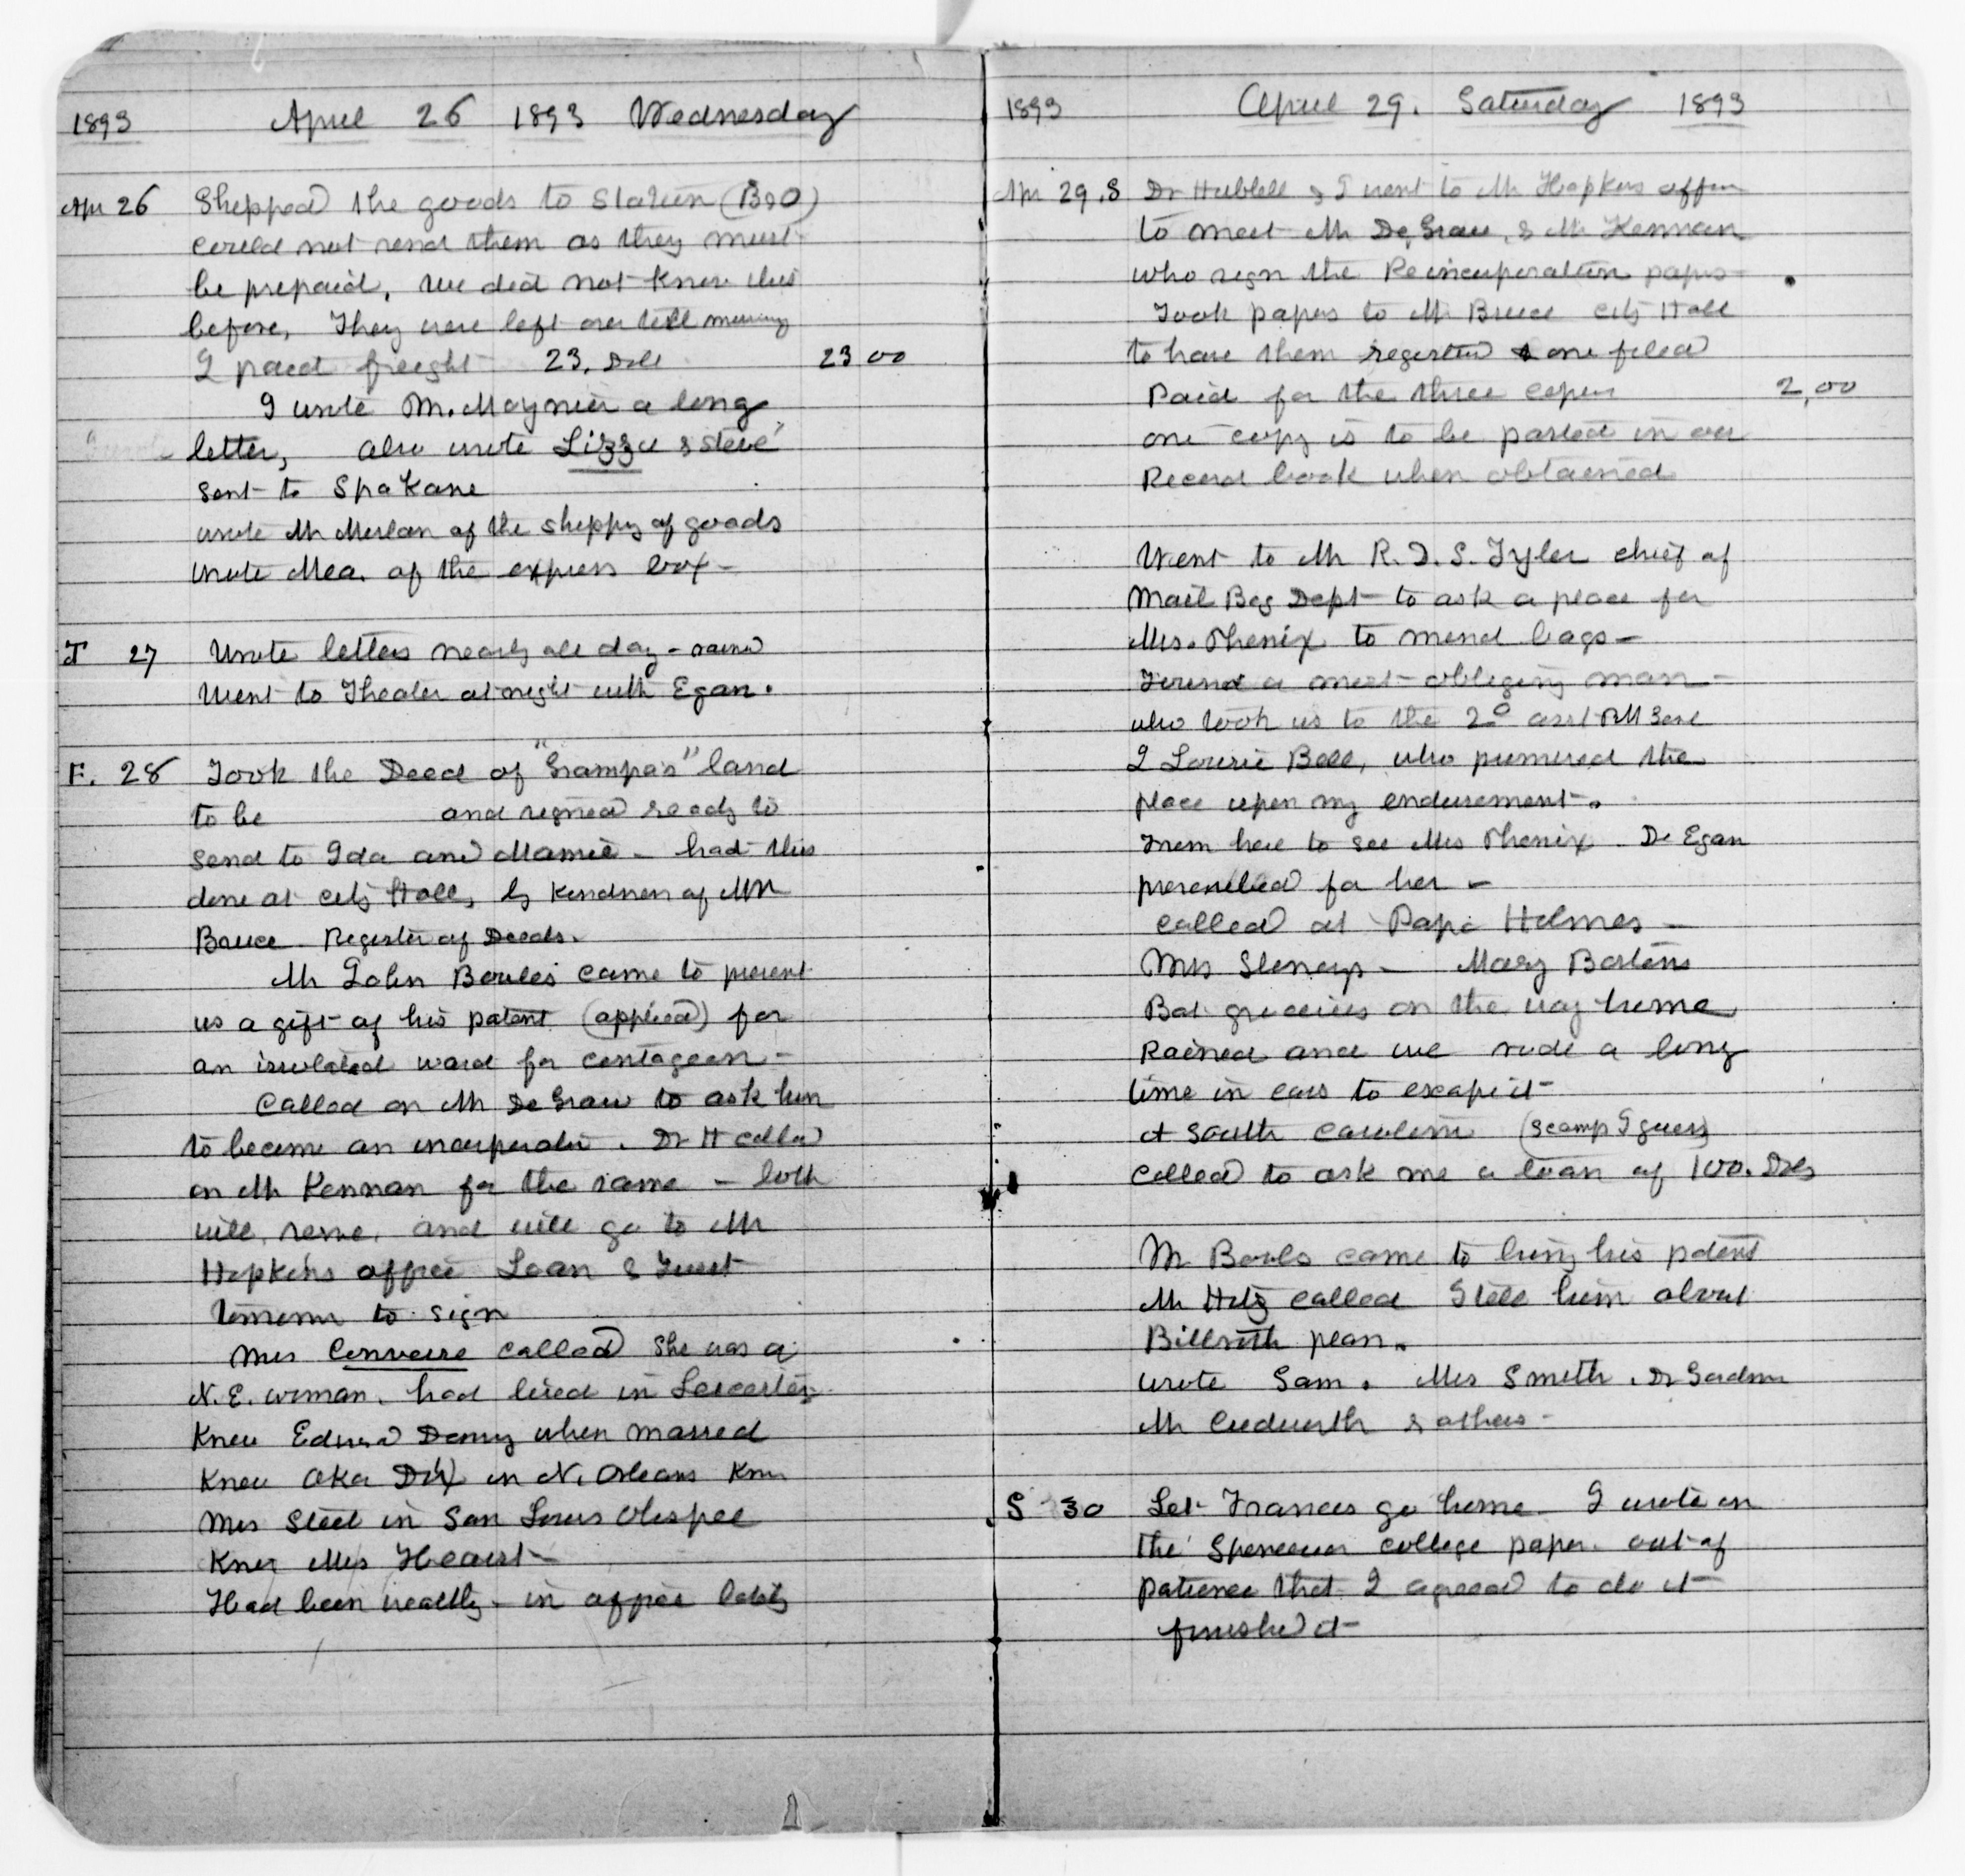 1893 April 26 1893 Wednesday
Apr 26 Shipped the goods to Station (B&O)
could not send them as they must
be prepaid, we did not know this
before, They were left over till morning
I paid freight 23. Doll 23 00
I wrote M. Moynier a long
letter, also wrote Lizzie & Steve
sent to Spokane
wrote Mr Merlan of the shippg of goods
wrote Mea. of the express box -
T 27 Wrote letters nearly all day - rained
Went to Theater at night with Egan.
F. 28 Took the Deed of "Grampa's" land
to be and signed ready to
send to Ida and Mamie - had this
done at City Hall, by kindness of Mr
Bruce Register of Deeds.
Mr John Boules came to present
us a gift of his patent (applied) for
an isolated ward for contageon -
Called on Mr De Graw to ask him
to become an incorporator. Dr H called
on Mr Kennan for the same - both
will serve, and will go to Mr
Hopkins office Loan & Trust
to sign
Mrs Converse called She was a
N.E. woman. had lived in Leicester
Knew Edward Denny when married
Knew Oka Dix in N. Orleans Knew
Mrs Steel in San Louis Obispee
Knew Mrs Hearst -
Had been wealthy - in office lately
1893 April 29. Saturday 1893
Apr 29. S Dr Hubbell & I went to Mr Hopkins office
to meet Mr De Graw, & Mr Kennan
who sign the Reincorporation papers
Took papers to Mr Bruce City Hall
to have them registered & one filed
Paid for the three copies 2,00
one copy is to be pasted in our
Record book when obtained
Went to Mr R. D. S. Tyler chief of
Mail Bag Dept - to ask a place for
Mrs. Phenix to mend bags -
Found a most obliging man -
who took us to the 2d asst PM Genl
J Lowrie Bell, who promised the
place upon my endorsement.
From here to see Mrs Phenix. Dr Egan
prescribed for her -
Called at Papa Holmes -
Mrs Stoneys - Mary Bartons
Bot groceries on the way home
Rained and we rode a long
time in cars to escape it -
A South Carolina (scamp I guess)
called to ask me a loan of 100. Dols
Mr Bouls came to bring his patent
Mr Hitz called I tell him about
Billroth plan.
wrote Sam. Mrs Smith. Dr Gardner
Mr Cudworth & others -
S 30 Let Frances go home. I wrote on
the Spencerian college paper. out of
patience that I agreed to do it -
finished it -